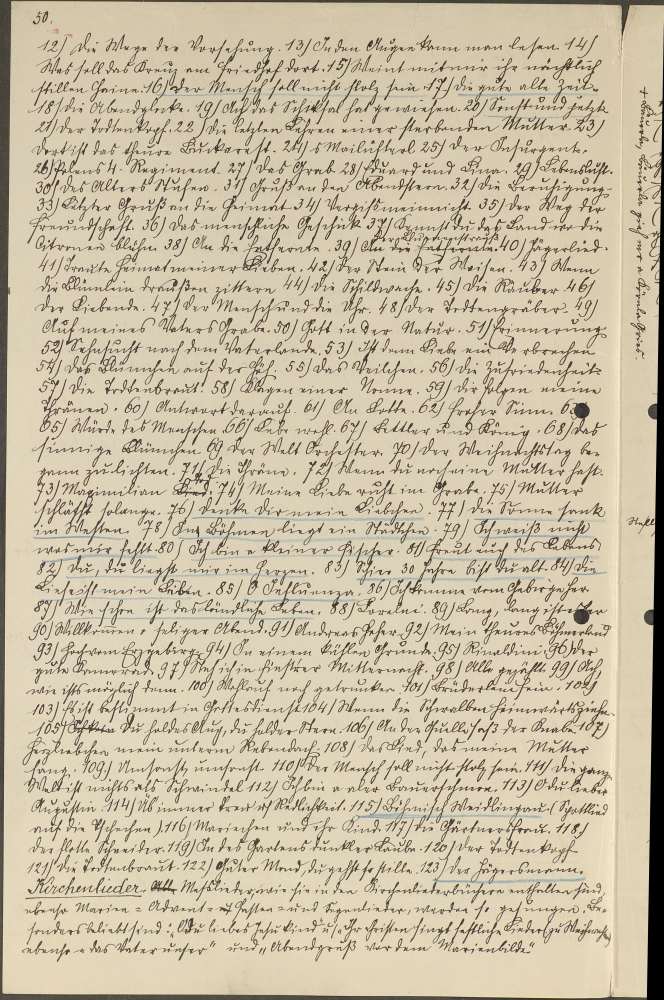 50.
12) Die Wege der Vorsehung. 13) In den Augen kann man lesen. 14)
Was soll das Kreuz am Friedhof dort. 15) Weint mit mir ihr nächtlich
stillen Haine. 16) Der Mensch soll nicht stolz sein. 17) Die gute alte Zeit.
18) Die Abendglocke. 19) Auf das Schicksal hat gewiesen. 20) Sonst und Jetzt
21) Der Todtenkopf. 22) Die letzten Lehren einer sterbenden Mutter. 23)
Dort ist das theure Bukarest. 24) s Mailüfterl 25) Der Insurgente.
26) Polens 4. Regiment. 27) Das Grab 28) Eduard und Lina. 29) Lebenslust.
30) Des Alters Stufen. 31) Gruß an den Abendstern. 32) Die Beruhigung.
33) Letzter Gruß an die Heimat 34) Vergißmeinnicht. 35) Der Weg der
Freundschaft. 36) Das menschliche Geschick 37) Kennst du das Land wo die
Citronen blühn. 38) An die Entfernte. 39) 40) Jägerlied.
41) Traute Heimat meiner Lieben. 42) Der Stein der Weisen. 43) Wenn
die Blümlein draußen zittern 44) Die Schildwache. 45) Die Räuber 46)
Der Liebende. 47) Der Mensch und die Uhr. 48) Der Todtengräber. 49)
Auf meines Vaters Grabe. 50) Gott in der Natur. 51) Erinnerung
52) Sehnsucht nach dem Vaterlande. 53) Ist denn Liebe ein Verbrechen
54) Das Blümchen auf der Höh. 55) Das Veilchen. 56) Die Zufriedenheit
57) Die Todtenbraut. 58) Klagen einer Nonne. 59) Dir folgen meine
Thränen. 60) Antwort darauf. 61) An Lotte. 62) Froher Sinn.
65) Würde des Menschen 66) Lebe wohl. 67) Bettler und König. 68) Das
sinnige Blümchen 69 Der Welt Orchester. 70) Der Weihnachtstag be-
gann zu lichten. 71) Die Thräne. 72) Wenn du noch eine Mutter hast.
73) Maximilian 74) Meine Liebe ruht im Grabe. 75) Mutter
schläfst so lange. 76) Denke dir mein Liebchen. 77) Die Sonne sank
im Westen. 78) In Böhmen liegt ein Städtchen. 79) Ich weiß nicht
was mir fehlt. 80) Ich bin a kleiner Fischer. 81) Freut euch des Lebens.
82) Du, du liegst mir im Herzen. 83) Schier 30 Jahre bist du alt. 84) Die
Liebe ist mein Leben. 85) O Influenza. 86) Ich komme vom Gebirge her.
87) Wie schön ist das ländliche Leben. 88) Lorelei. 89) Lang, lang ist es her
90) Willkommen o seliger Abend. 91) Andreas Hofer. 92) Mein theures Böhmerland
93) Hoch vom Erzgebirg 94) In einem kühlen Grunde. 95) Rinaldini 96) Der
gute Kamerad. 97) Steh ich in finstrer Mitternacht. 98) Alle gezählt 99) Ach,
wie ists möglich dann. 100) Wohlauf noch getrunken. 101) Brüderlein fein. 102)
103) Es ist bestimmt in Gottes 104) Wenn die Schwalben heimwärts ziehn.
105) Du holdes Aug, du holder Stern. 106) An der Quelle saß der Knabe 107)
Herzliebchen mein unterm Rebendach. 108) Das Lied, das meine Mutter
sang. 109) Umsonst, umsonst. 110) Der Mensch soll nicht stolz sein. 111) Die ganze
Welt ist nichts als Schwindel 112) Ich bin a alter Bauersmann. 113) O du lieber
Augustin. 114) Üb immer Treu u. Redlichkeit. 115) Böhmisch Weidlingau (Spottlied
auf die Tschechen) 116) Mariechen und ihr Kind. 117) Die Gärtnersfrau. 118)
Der flotte Schneider. 119) In des Gartens dunkler Laube. 120) Der Todtenkopf
121) Die Todtenbraut. 122) Guter Mond, du gehst so stille. 123) Der Jägersmann.
Kirchenlieder. Meßlieder, wie sie in den Kirchenliederbüchern enthalten sind,
ebenso Marien- Advent- Fasten- und Segenlieder, werden so gesungen. Be-
sonders beliebt sind: "O du liebes Jesukind u. Ihr Christen singt festliche Lieder (zu Weihnachten)
ebenso "das Vater unser" und "Abendgruß vor dem Marienbilde"